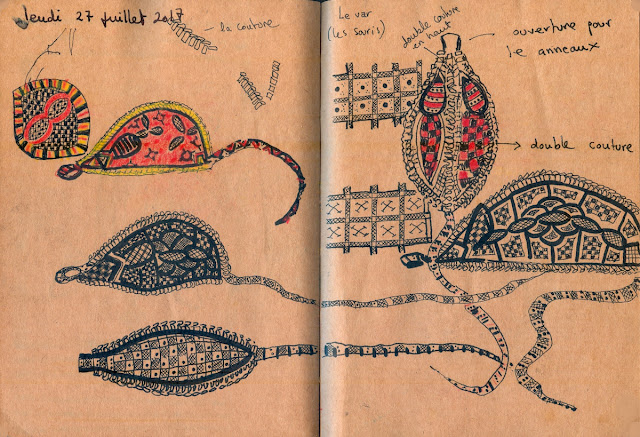 Jeudi 27 Juillet 2017
la couture
Le var
(les souris)
double couture
en haut
ouverture pour
le anneaux
double couture